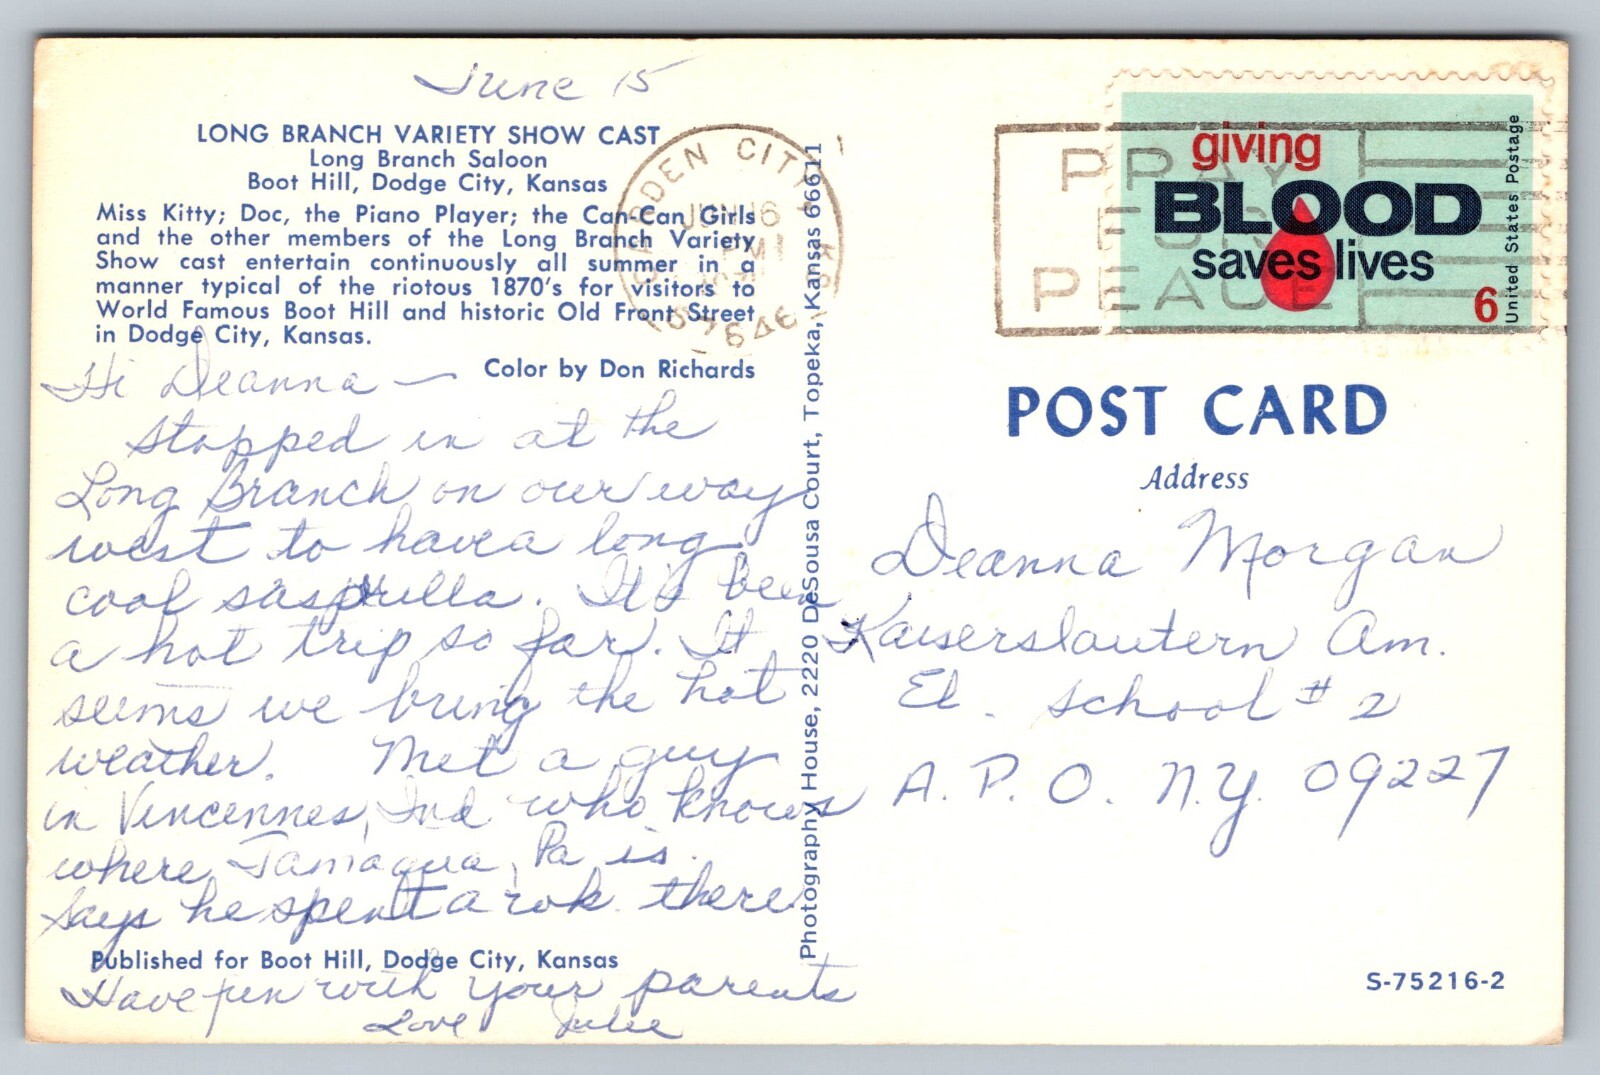 June 15
LONG BRANCH VARIETY SHOW CAST
Long Branch Saloon
Boot Hill, Dodge City, Kansas
Miss Kitty; Doc, the Piano Player; the Can-Can Girls
and the other members of the Long Branch Variety
Show cast entertain continuously all summer in a
manner typical of the riotous 1870's for visitors to
World Famous Boot Hill and historic Old Front Street
in Dodge City, Kansas.
Color by Don Richards
Hi Deanna —
Stopped in at the
Long Branch on our way
west to have a long
cool sasprilla. It's been
a hot trip so far. It
seems we bring the hot
weather. Met a guy
in Vincennes, Ind who knows
where Tamaqua, Pa is.
Says he spent a wk. there
Published for Boot Hill, Dodge City, Kansas
Have fun with your parents
Love Julie
Photography House, 2220 DeSousa Court, Topeka, Kansas 66611
GARDEN CITY, KS
JUN 16
PM
67846
PRAY
FOR
PEACE
giving
BLOOD
saves lives
6
United States Postage
POST CARD
Address
Deanna Morgan
Kaiserslautern Am.
El. School #2
A.P.O. N.Y. 09227
S-75216-2